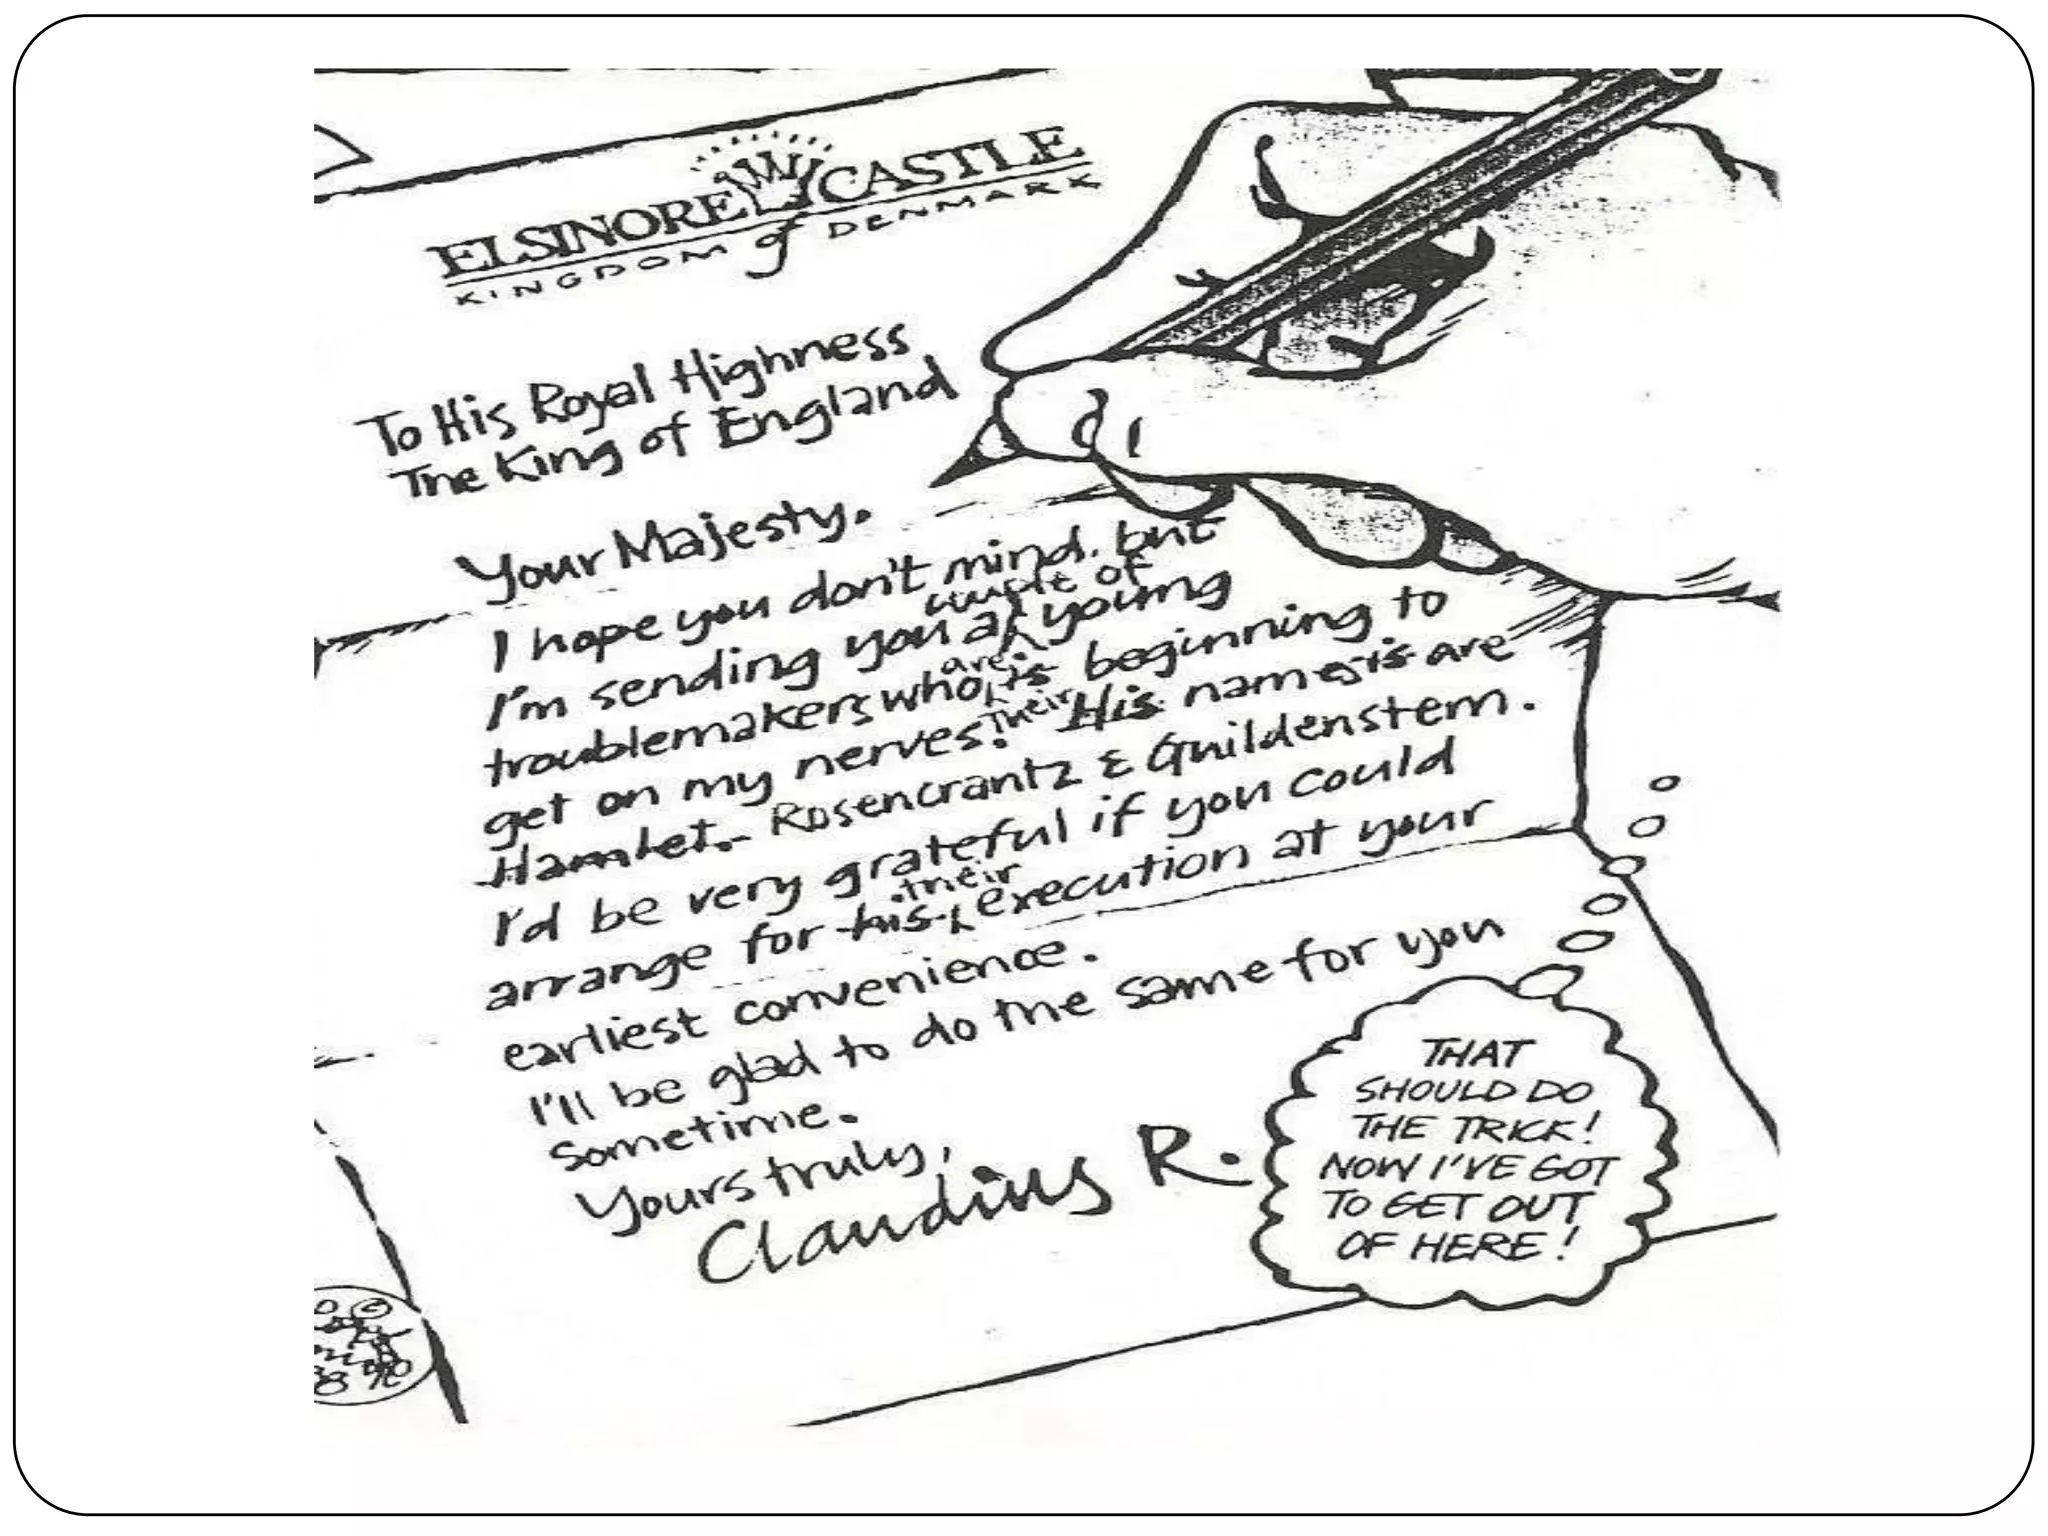 ELSINORE CASTLE
KINGDOM of DENMARK
To His Royal Highness
The King of England
Your Majesty.
I hope you don't mind, but
couple of
I'm sending you a young
are
troublemakers who is beginning to
get on my nerves. Their His names is are
Hamlet. Rosencrantz & Guildenstern.
I'd be very grateful if you could
their
arrange for his execution at your
earliest convenience.
I'll be glad to do the same for you
Sometime.
Yours truly,
Claudius R.
THAT
SHOULD DO
THE TRICK!
NOW I'VE GOT
TO GET OUT
OF HERE!